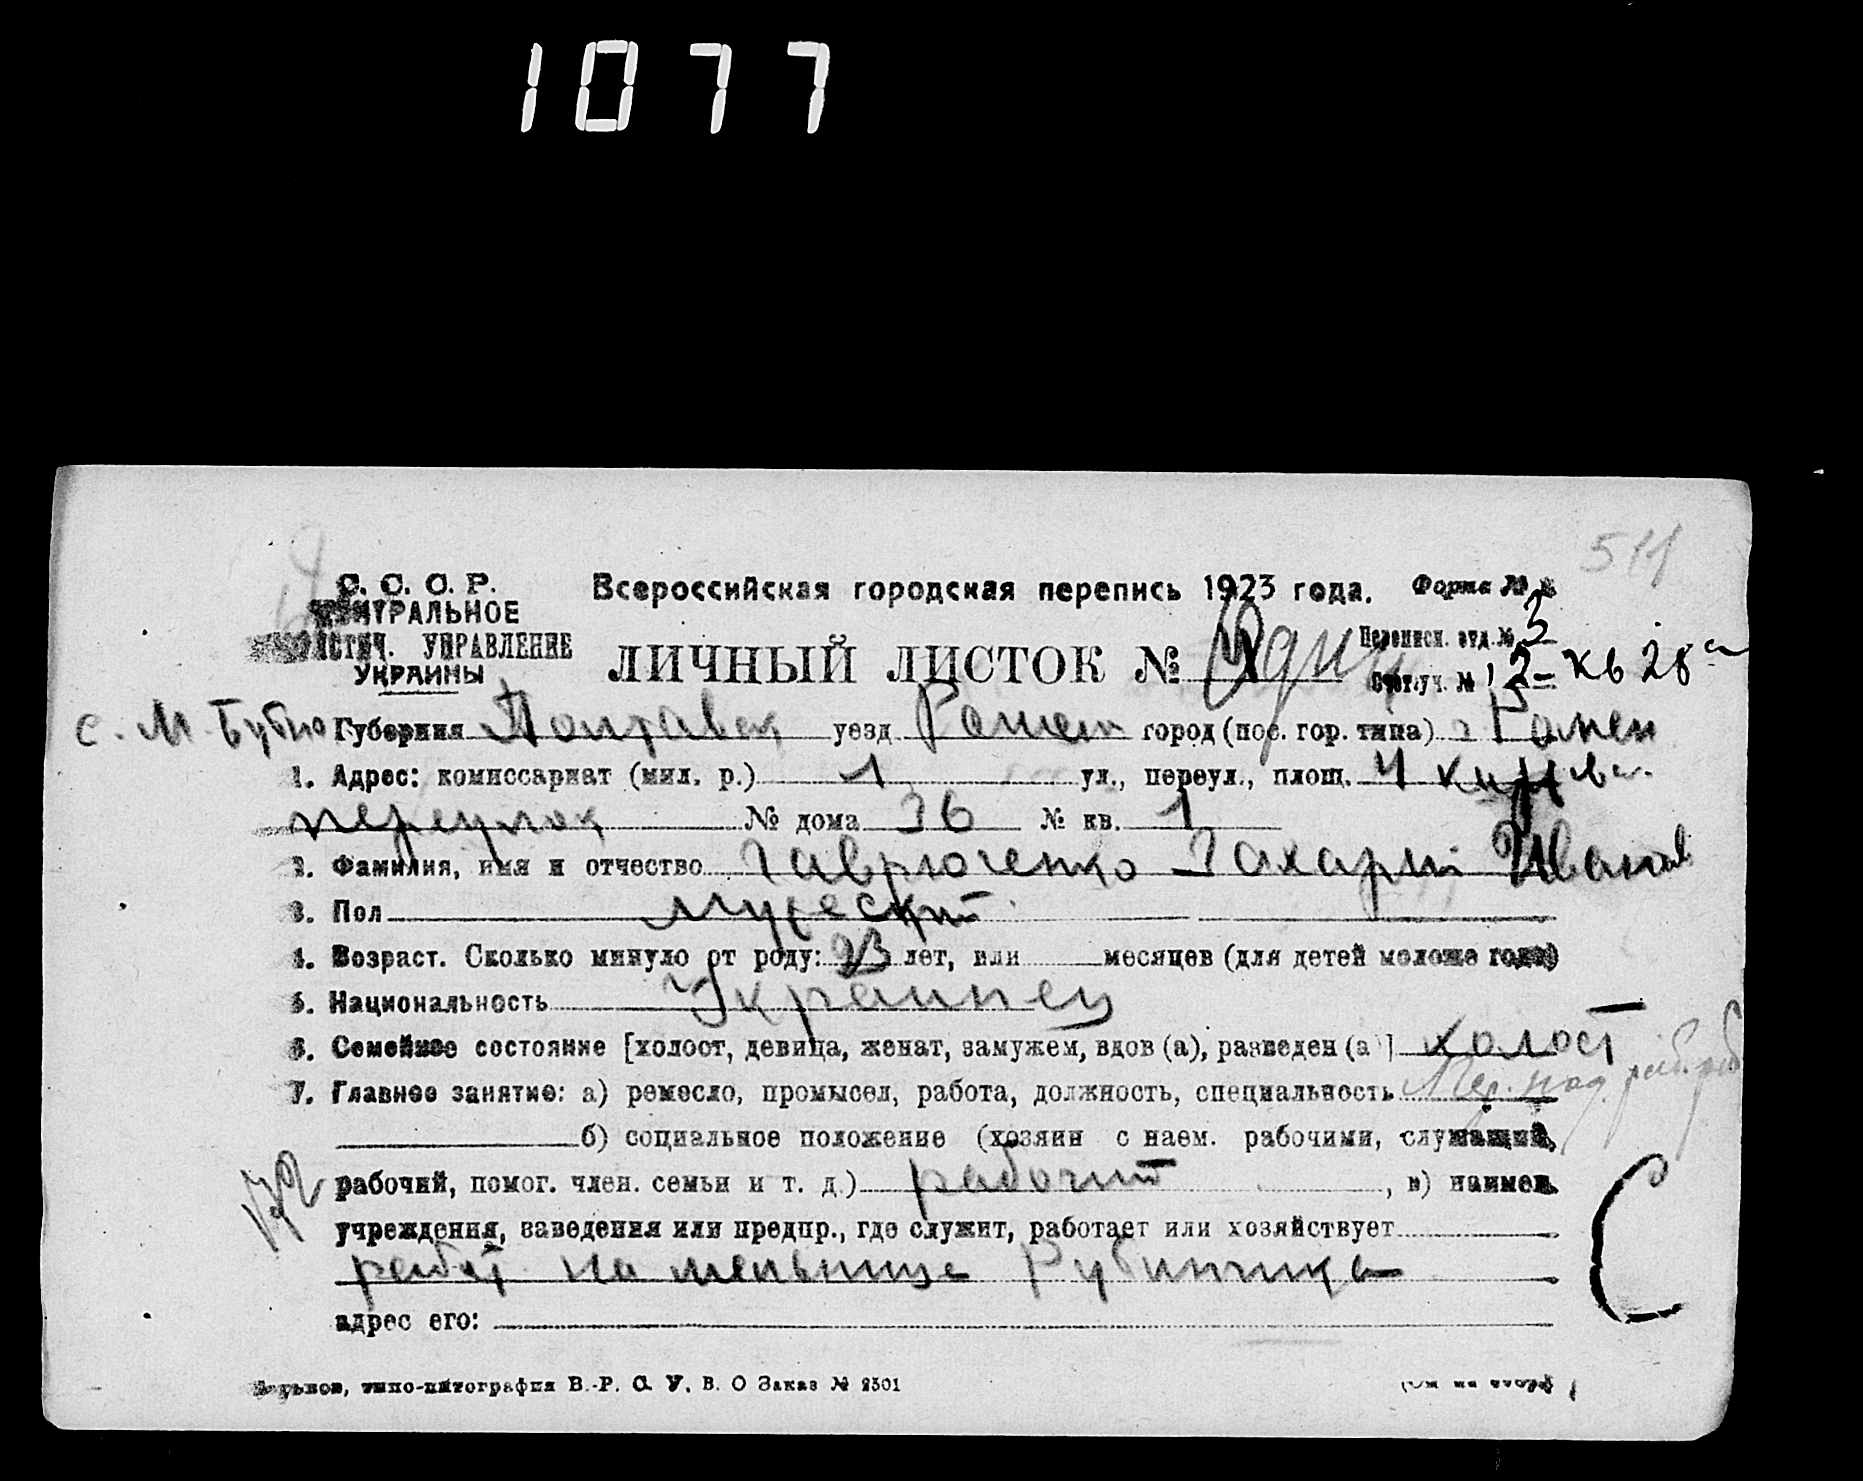 1077
511
С. С. С. Р. Всероссийская городская перепись 1923 года. Форма №
ЦЕНТРАЛЬНОЕ
СТАТИСТИЧ. УПРАВЛЕНИЕ ЛИЧНЫЙ ЛИСТОК № Переписн. отд. № 3
УКРАИНЫ Счетн. уч. № 12 - кв 28
с. М. Бубно Губерния Полтавск уезд Ромен город (пос. гор. типа) г Ромен
1. Адрес: комиссариат (мил. р.) 1 ул., переул., площ. 4
переулок № дома 36 № кв. 1
2. Фамилия, имя и отчество Гаврюченко Захарий Иванов
3. Пол Мужеский
4. Возраст. Сколько минуло от роду: 23 лет, или месяцев (для детей моложе года)
5. Национальность Украинец
6. Семейное состояние [холост, девица, женат, замужем, вдов (а), разведен (а)] холост
7. Главное занятие: а) ремесло, промысел, работа, должность, специальность
б) социальное положение (хозяин с наем. рабочими, служащий,
рабочий, помог. член. семьи и т. д.) рабочий, в) наимен.
учреждения, заведения или предпр., где служит, работает или хозяйствует
работ на мельнице Рубинчика
адрес его:
Харьков, типо-литография В.-Р. С. У. В. О Заказ № 2501